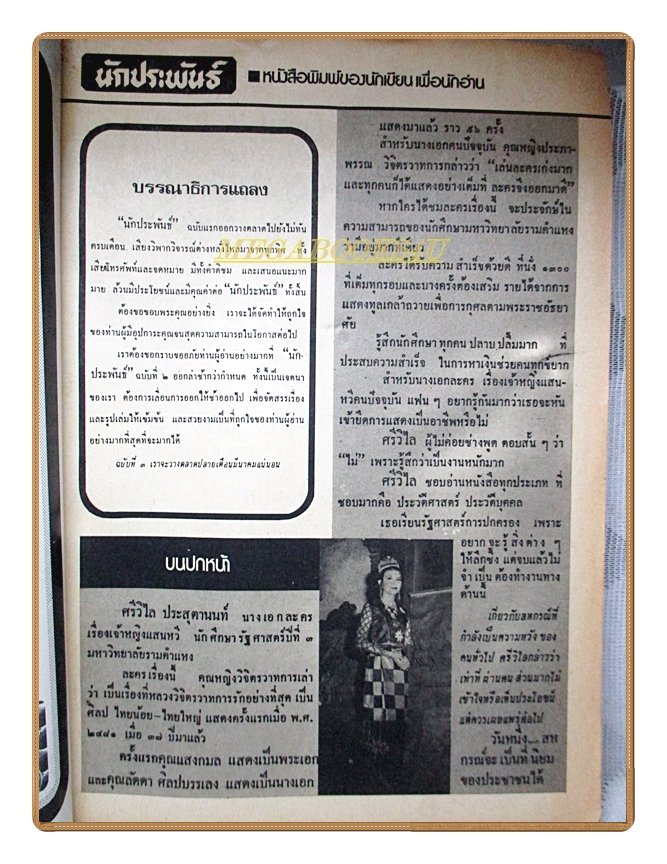 นักประพันธ์
■ หนังสือพิมพ์ของนักเขียน เพื่อนักอ่าน
บรรณาธิการแถลง
“นักประพันธ์” ฉบับแรกออกวางตลาดไปยังไม่ทัน
ครบเดือน เสียงวิพากวิจารณ์ต่างหลั่งไหลมาจากทุกทิศ ทั้ง
เสียงโทรศัพท์และจดหมาย มีทั้งคำติชม และเสนอแนะมาก
มาย ล้วนมีประโยชน์และมีคุณค่าต่อ “นักประพันธ์” ทั้งสิ้น
ต้องขอขอบพระคุณอย่างยิ่ง เราจะได้จัดทำให้ถูกใจ
ของท่านผู้มีอุปการะคุณจนสุดความสามารถในโอกาสต่อไป
เราต้องขอกราบขออภัยท่านผู้อ่านอย่างมากที่ “นัก-
ประพันธ์” ฉบับที่ ๒ ออกล่าช้ากว่ากำหนด ทั้งนี้เป็นเจตนา
ของเรา ต้องการเลื่อนการออกให้ช้าออกไป เพื่อจัดสรรเรื่อง
และรูปเล่มให้เข้มข้น และสวยงามเป็นที่ถูกใจของท่านผู้อ่าน
อย่างมากที่สุดที่จะมากได้
ฉบับที่ ๓ เราจะวางตลาดปลายเดือนมีนาคมแน่นอน
บนปกหน้า
ศรีวิไล ประสุตานนท์ นางเอกละคร
เรื่องเจ้าหญิงแสนหวี นักศึกษารัฐศาสตร์ปีที่ ๓
มหาวิทยาลัยรามคำแหง
ละครเรื่องนี้ คุณหญิงวิจิตรวาทการเล่า
ว่า เป็นเรื่องที่หลวงวิจิตรวาทการรักอย่างที่สุด เป็น
ศิลป ไทยน้อย-ไทยใหญ่ แสดงครั้งแรกเมื่อ พ.ศ.
๒๔๘๑ เมื่อ ๓๗ ปีมาแล้ว
ครั้งแรกคุณแสงกมล แสดงเป็นพระเอก
และคุณลัดดา ศิลปบรรเลง แสดงเป็นนางเอก
แสดงมาแล้ว ราว ๕๖ ครั้ง
สำหรับนางเอกคนปัจจุบัน คุณหญิงประภา-
พรรณ วิจิตรวาทการกล่าวว่า “เล่นละครเก่งมาก
และทุกคนก็ได้แสดงอย่างเต็มที่ ละครจึงออกมาดี”
หากใครได้ชมละครเรื่องนี้ จะประจักษ์ใน
ความสามารถของนักศึกษามหาวิทยาลัยรามคำแหง
ว่ามีอยู่มากทีเดียว
ละครได้รับความสำเร็จด้วยดี ที่นั่ง ๑๓๐๐
ที่เต็มทุกรอบและบางครั้งต้องเสริม รายได้จากการ
แสดงทูลเกล้าถวายเพื่อการกุศลตามพระราชอัธยา
ศัย
รู้สึกนักศึกษา ทุกคน ปลาบ ปลื้มมาก ที่
ประสบความสำเร็จ ในการหาเงินช่วยคนทุกข์ยาก
สำหรับนางเอกละคร เรื่องเจ้าหญิงแสน-
หวีคนปัจจุบัน แฟน ๆ อยากรู้กันมากว่าเธอจะหัน
เข้ายึดการแสดงเป็นอาชีพหรือไม่
ศรีวิไล ผู้ไม่ค่อยช่างพูด ตอบสั้น ๆ ว่า
“ไม่” เพราะรู้สึกว่าเป็นงานหนักมาก
ศรีวิไล ชอบอ่านหนังสือทุกประเภท ที่
ชอบมากคือ ประวัติศาสตร์ ประวัติบุคคล
เธอเรียนรัฐศาสตร์การปกครอง เพราะ
อยาก จะ รู้ สิ่ง ต่าง ๆ
ให้ลึกซึ้ง แต่จบแล้วไม่
จำ เป็น ต้องทำงานทาง
ด้านนี้
เกี่ยวกับสหกรณ์ที่
กำลังเป็นความหวัง ของ
คนทั่วไป ศรีวิไลกล่าวว่า
เท่าที่ ผ่านคน ส่วนมากไม่
เข้าใจหรือเห็นประโยชน์
แต่ควรเผยแพร่ต่อไป
วันหนึ่ง.... สห
กรณ์จะ เป็นที่ นิยม
ของประชาชนได้